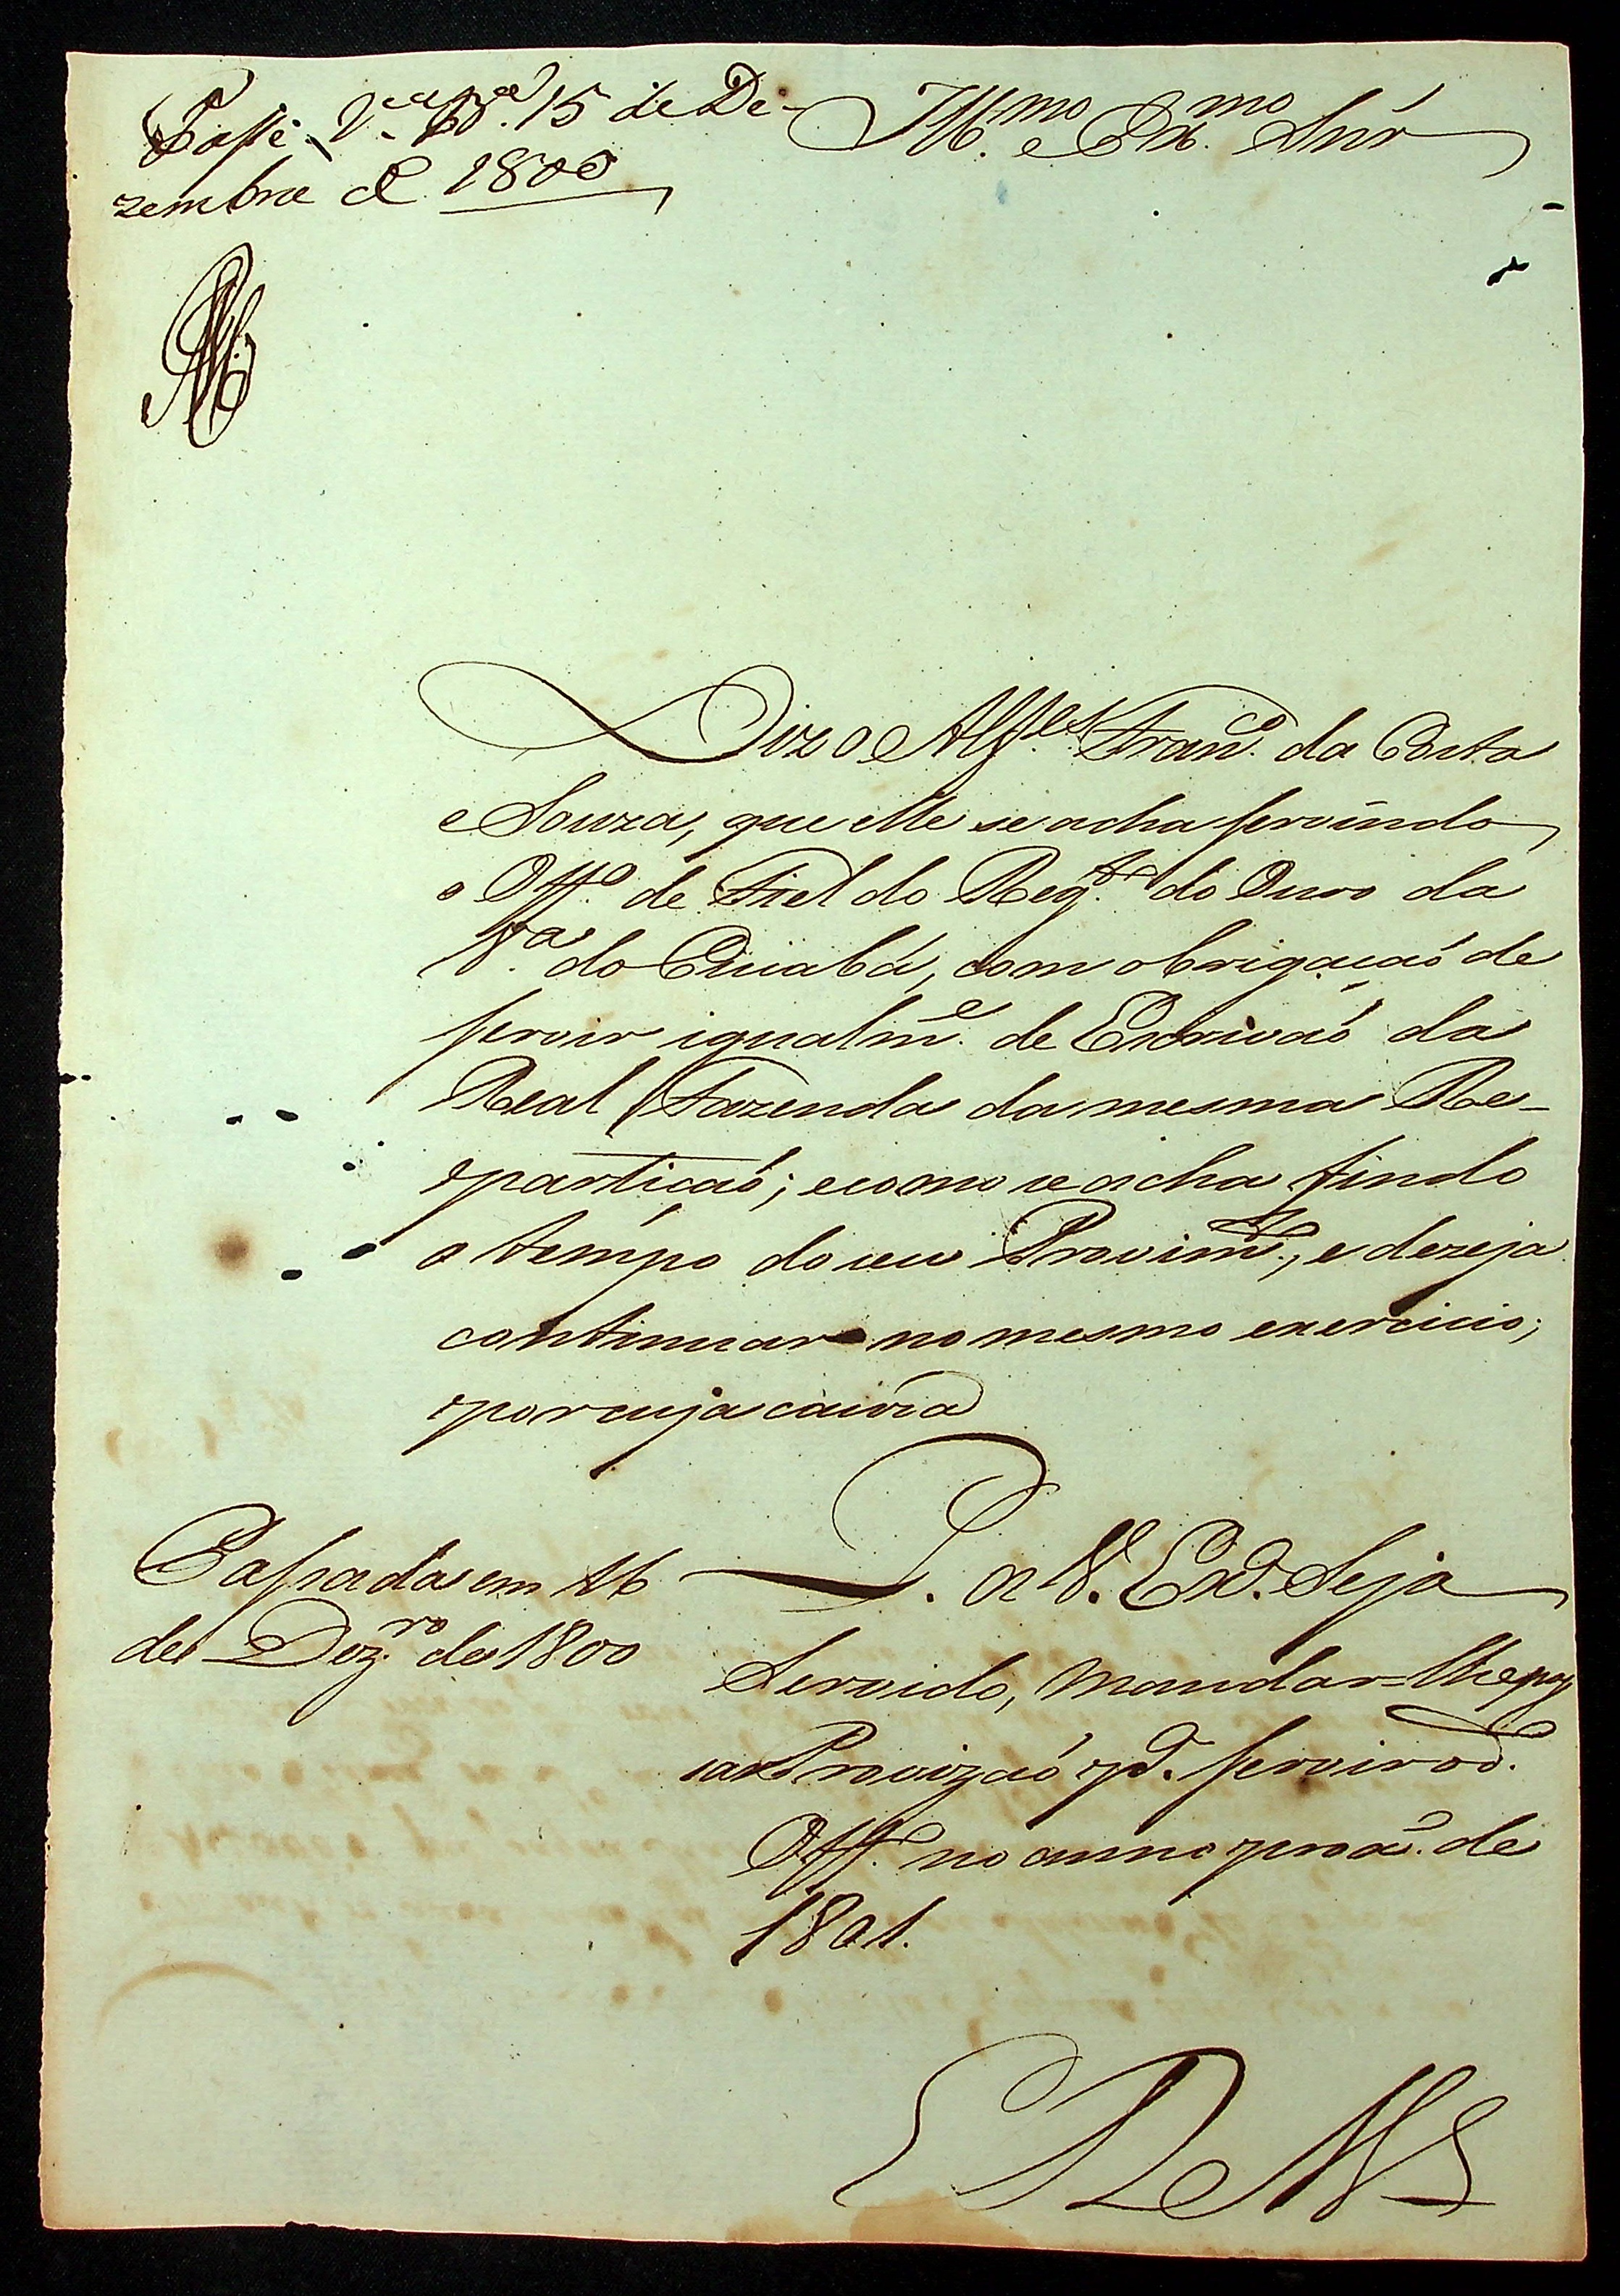 Passe. V.ª B.ª 15 de De-
zembro de 1800
Ill.mo e Ex.mo Snr
Diz o Alf.es Fran.co da Costa
e Souza, que elle se acha servindo
o Off.o de Fiel do Reg.to do Ouro da
V.a do Cuiabá, com obrigaçaõ de
servir igualm.e de Escrivaõ da
Real Fazenda da mesma Re-
partiçaõ; e como se acha findo
o tempo do seu Provim.to, e dezeja
continuar no mesmo exercicio;
por cuja cauza
Passada em 16
de Dez.ro de 1800
P. a V. Ex.ª Seja
Servido, mandar=lhe pas
sar Provizaõ p.ª servir o d.º
Off.o no anno prox.º de
1801.
E R M.ce